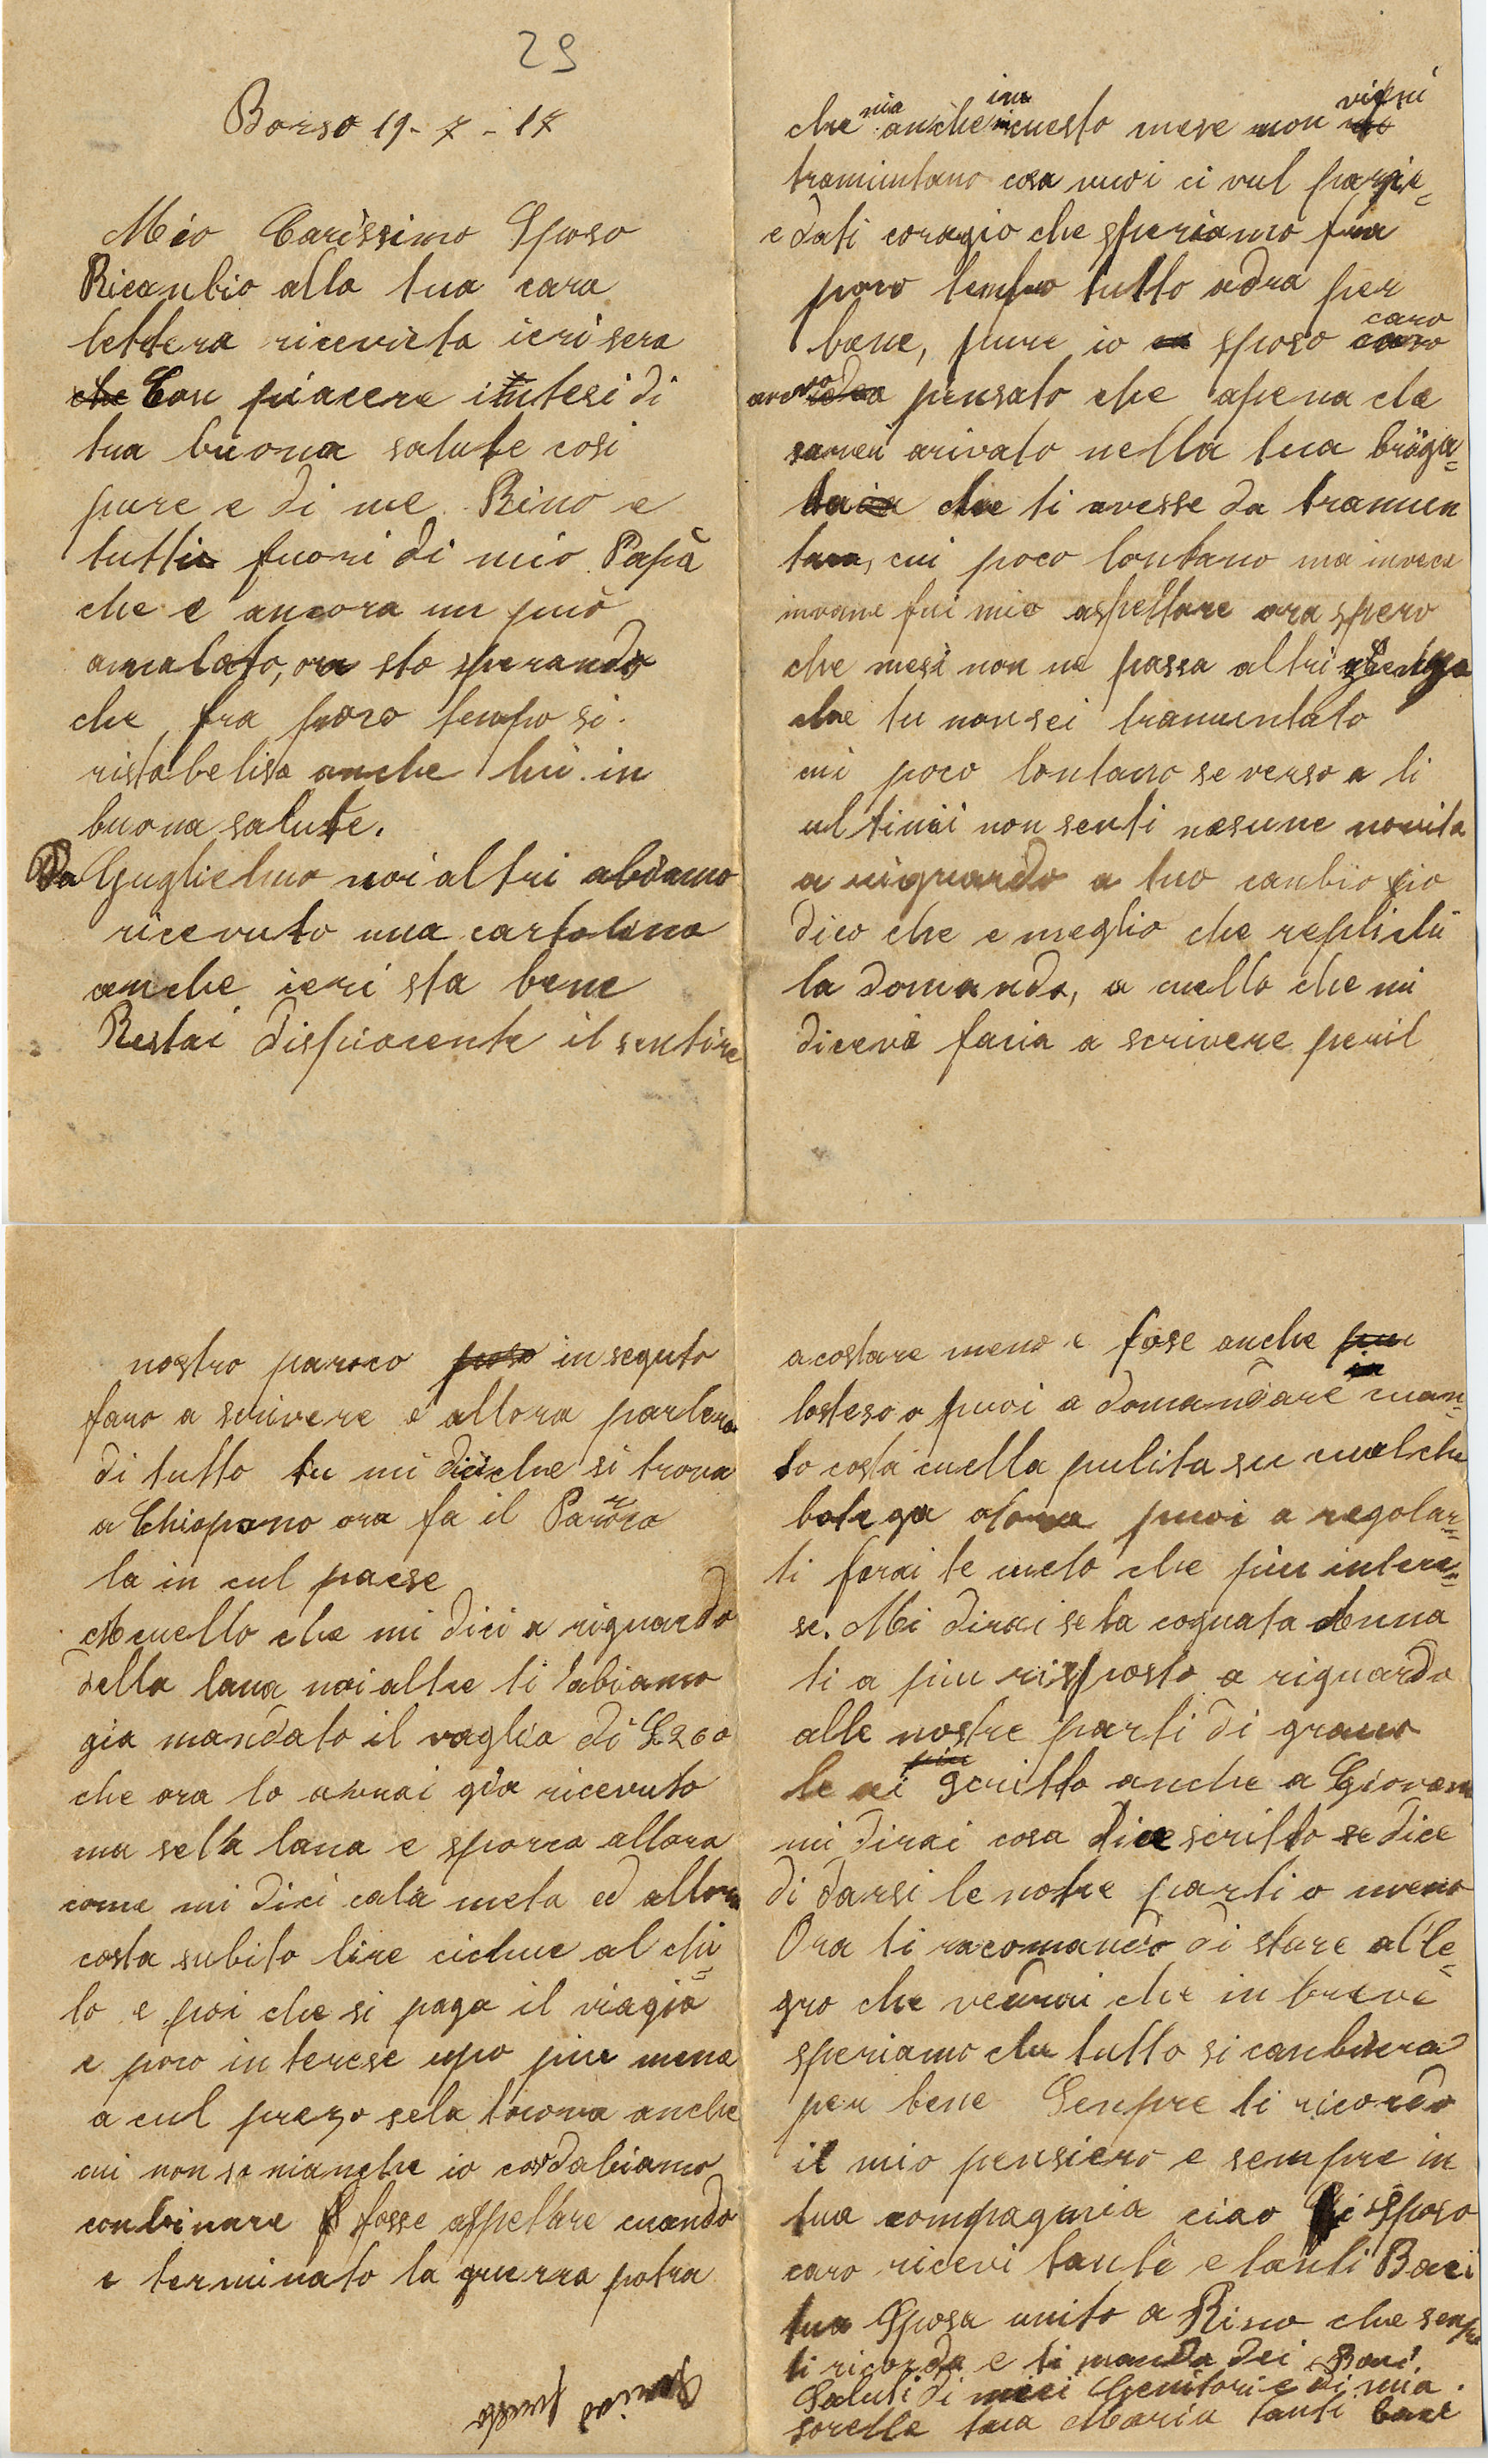 29
Borso 19-7-17
Mio Carissimo Sposo
Ricanbio alla tua cara
lettera ricevuta ieri sera
che Con piacere intesi di
tua buona salute cosi
pure e di me Rino e
tutti fuori di mio Papà
che e ancora un può
amalato, ora sto sperando
che fra poco tempo si
ristabelisa anche lui in
buona salute.
Da Guglielmo noi altri abiamo
ricevuto una cartolina
anche ieri sta bene
Restai dispiacente il sentire
che mia anche in cuesto mese non vieni
tramuntano cosa vuoi ci vul pazie=
e dati coragio che speriamo fra
poco tenpo tutto adra per
bene, pure io sposo caro caro
avevo pensato che apena che
sarei arivato nella tua briga=
ta che ti avesse da tramun
tare, cui poco lontano ma invece
invane fui mio aspettare ora spero
che mesi non ne passa altri
che tu non sei tramuntato
cui poco lontano se verso a li
ultimi non senti nesune novita
a riguardo a tuo canbio io
dico che e meglio che replichi
la domanda, a cuello che mi
dicevi facia a scrivere per il
nostro paroco poso in seguto
faro a scrivere e allora parlero
di tutto tu mi dici che si trova
a Chiopano ora fa il Paroco
la in cul paese
A cuello che mi dici a riguardo
della lana noi altre ti labiamo
gia mandato il vaglia di L260
che ora lo avrai gia ricevuto
ma se la lana e sporca allora
come mi dici cala meta ed allora
costa subito lire cichue al chi=
lo e poi che si paga il viagio
e poco interese upo piu meno
a cul prezo se la trova anche
cui non so nianche io cosa dabiamo
conbinare fosse aspettare cuando
e terminato la guerra potra
acostare meno e fose anche piu
losteso o puoi a domandare cuan=
to costa cuella pulita su cualche
botega alora puoi a regolar=
ti farai te cuelo che piu intere=
se. Mi dirai se la cognata Anna
ti a piu risposto a riguardo
alle nostre parti di grano
le ai piu scritto anche a Giovani
mi dirai cosa dice scritto se dice
di darsi le notre parti o meno
Ora ti racomando di stare alle=
gro che vedrai che in breve
speriamo che tutto si canbiera
per bene Senpre ti ricordo
il mio pensiero e sempre in
tua compagnia ciao Sposo
caro ricevi tanti e tanti Baci
tua Sposa unito a Rino che senpre
ti ricorda e ti manda dei Baci.
Saluti di miei Genitori e di mia
sorella tua Maria tanti baci
presto